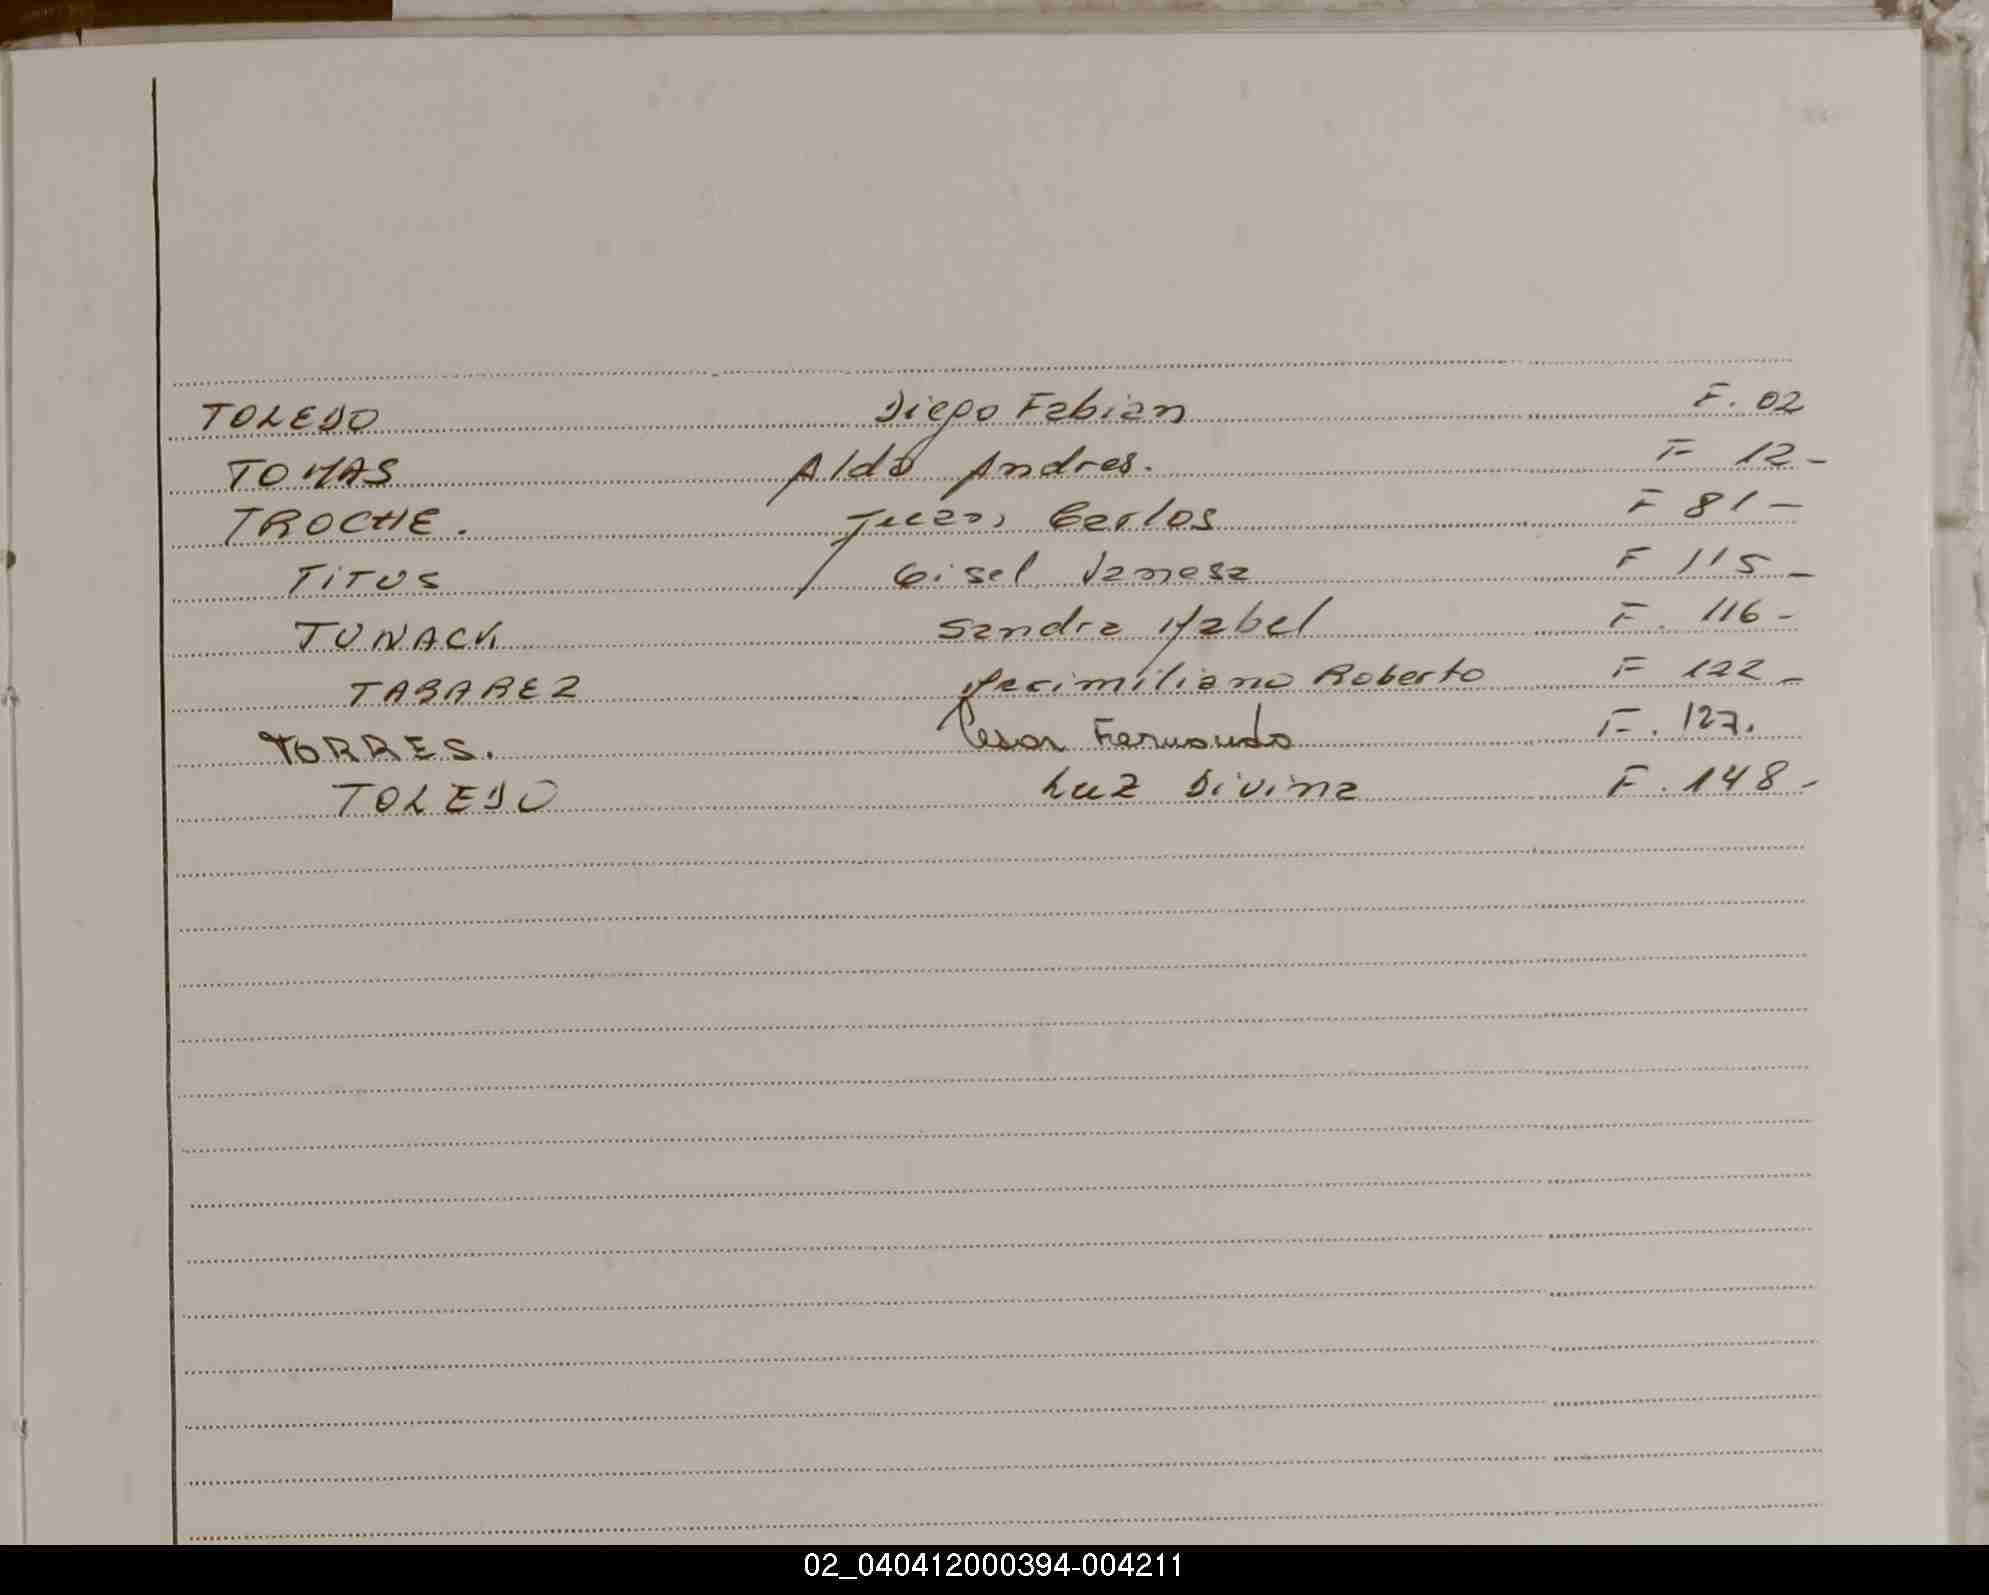 TOLEDO Diego Fabian F. 02
TOMAS Aldo Andres. F 12-
TROCHE. Juan Carlos F 81-
TiTUS Gisel Vanesa F 115-
TUNACK Sandra Mabel F. 116-
TABAREZ Maximiliano Roberto F 122-
TORRES. Cesar Fernando F. 127.
TOLEDO Luz Divina F. 148-
02_040412000394-004211